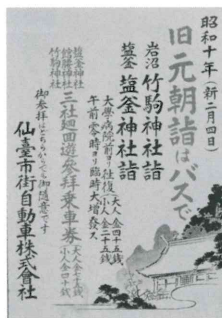 昭和十年新二月四日
旧元朝詣はバスで
岩沼 竹駒神社詣
塩釜 塩釜神社詣
大學病院前ヨリ往復 大人金四十五銭 小人金二十五銭
午前零時ヨリ臨時大増發ス
塩釜神社
竹駒神社
三社廻回遊参拜乗車券
御参拝はどちらからでも御随意です
仙臺市街自動車株式會社